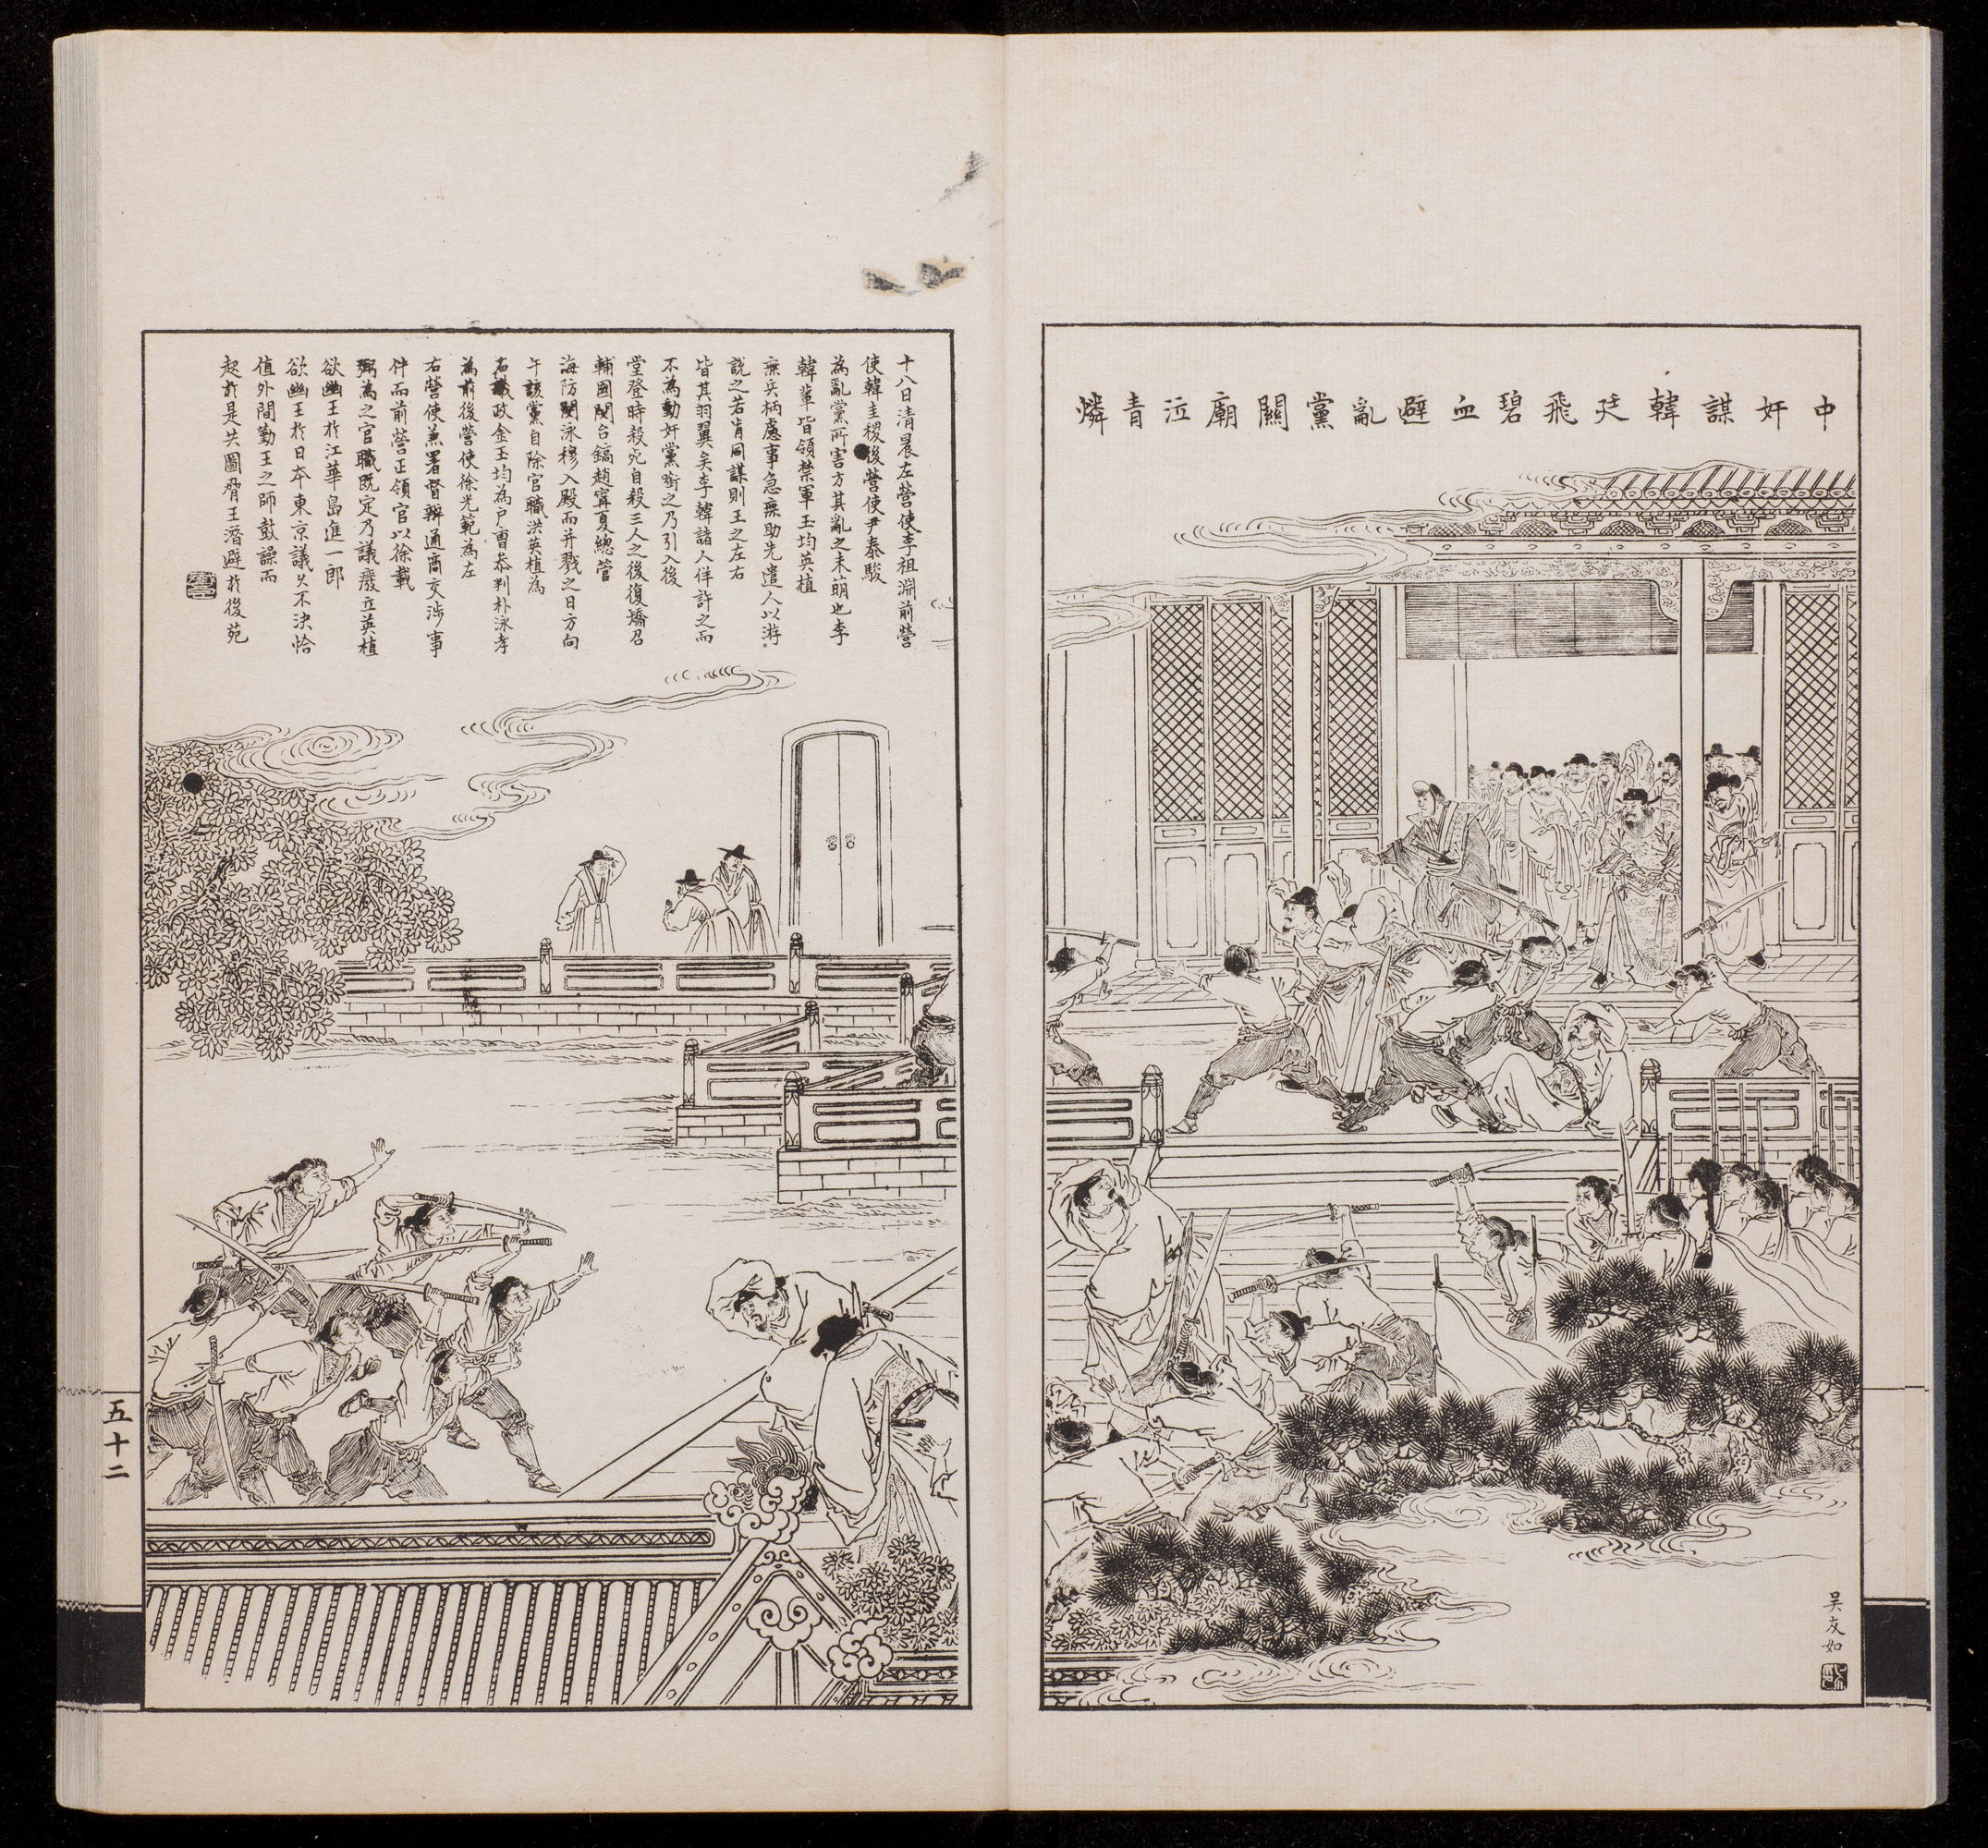 中奸謀韓廷飛碧血避亂黨關廟泣青燐
吳友如
十八日清晨左營使李祖淵前營
使韓圭稷後營使尹泰駿
為亂黨所害方其亂之未萌也李
韓輩皆領禁軍玉均英植
無兵柄慮事急無助先遣人以游
說之若肯同謀則王之左右
皆其羽翼矣李韓諸人佯許之而
不為動奸黨銜之乃引入後
堂登時殺死自殺三人之後復矯召
輔國閔台鎬趙甯夏總管
海防閔泳穆入殿而并戮之日方向
午該黨自除官職洪英植為
右議政金玉均為戶曹恭判朴泳孝
為前後營使徐光範為左
右營使兼署督辦通商交涉事
件而前營正領官以徐載
弼為之官職既定乃議廢立英植
欲幽王於江華島進一郎
欲幽王於日本東京議久不決恰
值外間勤王之師鼓譟而
起於是共圖脅王潛避於後苑
五十二